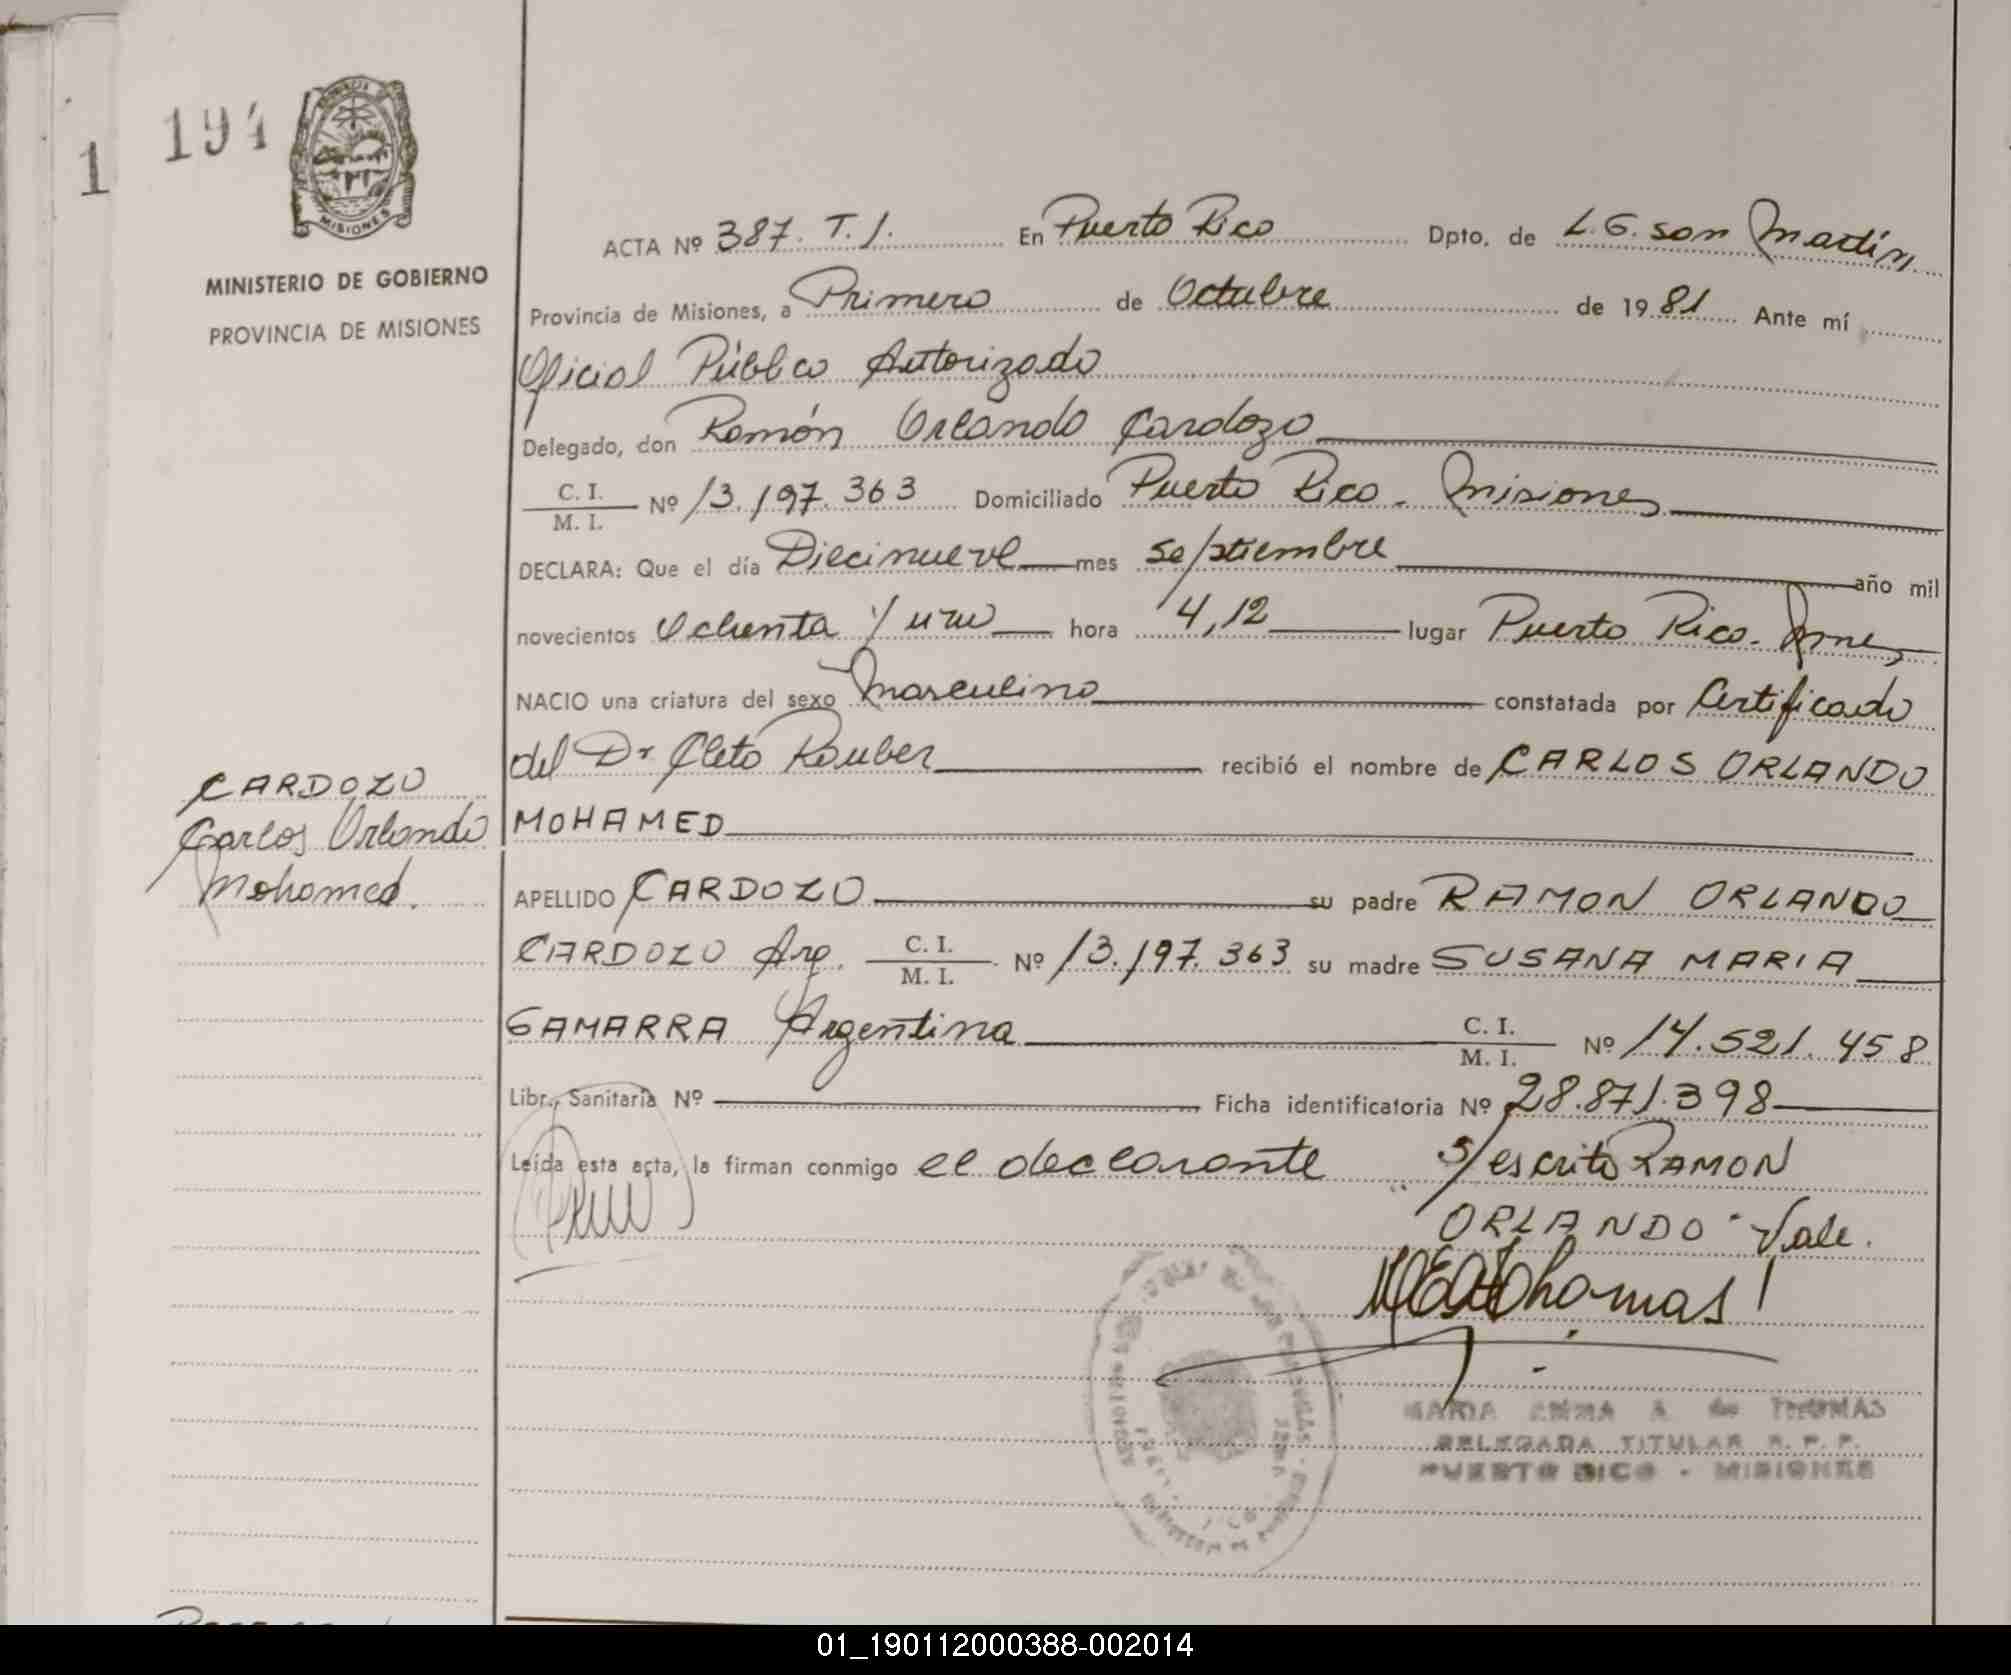 1
194
MISIONES
MINISTERIO DE GOBIERNO
PROVINCIA DE MISIONES
ACTA Nº 387. T. I. En Puerto Rico Dpto. de L. G. San Martín
Provincia de Misiones, a Primero de Octubre de 1981 Ante mí
Oficial Público Autorizado
Delegado, don Ramón Orlando Cardozo
C. I. / M. I. Nº 13.197.363 Domiciliado Puerto Rico - Misiones
DECLARA: Que el día Diecinueve mes septiembre año mil
novecientos Ochenta y uno hora 4,12 lugar Puerto Rico - Mnes
NACIO una criatura del sexo Masculino constatada por Certificado
del Dr Cleto Rauber recibió el nombre de CARLOS ORLANDO
MOHAMED
CARDOZO
Carlos Orlando
Mohamed.
APELLIDO CARDOZO su padre RAMON ORLANDO
CARDOZO Arg. C. I. / M. I. Nº 13.197.363 su madre SUSANA MARIA
GAMARRA Argentina C. I. / M. I. Nº 14.521.458
Libr. Sanitaria Nº Ficha identificatoria Nº 28.871.398
Leída esta acta, la firman conmigo el declarante S/escrito RAMON
ORLANDO - Vale.
Thomas
MARIA EMMA A. de THOMAS
DELEGADA TITULAR R. P. P.
PUERTO RICO - MISIONES
01_190112000388-002014